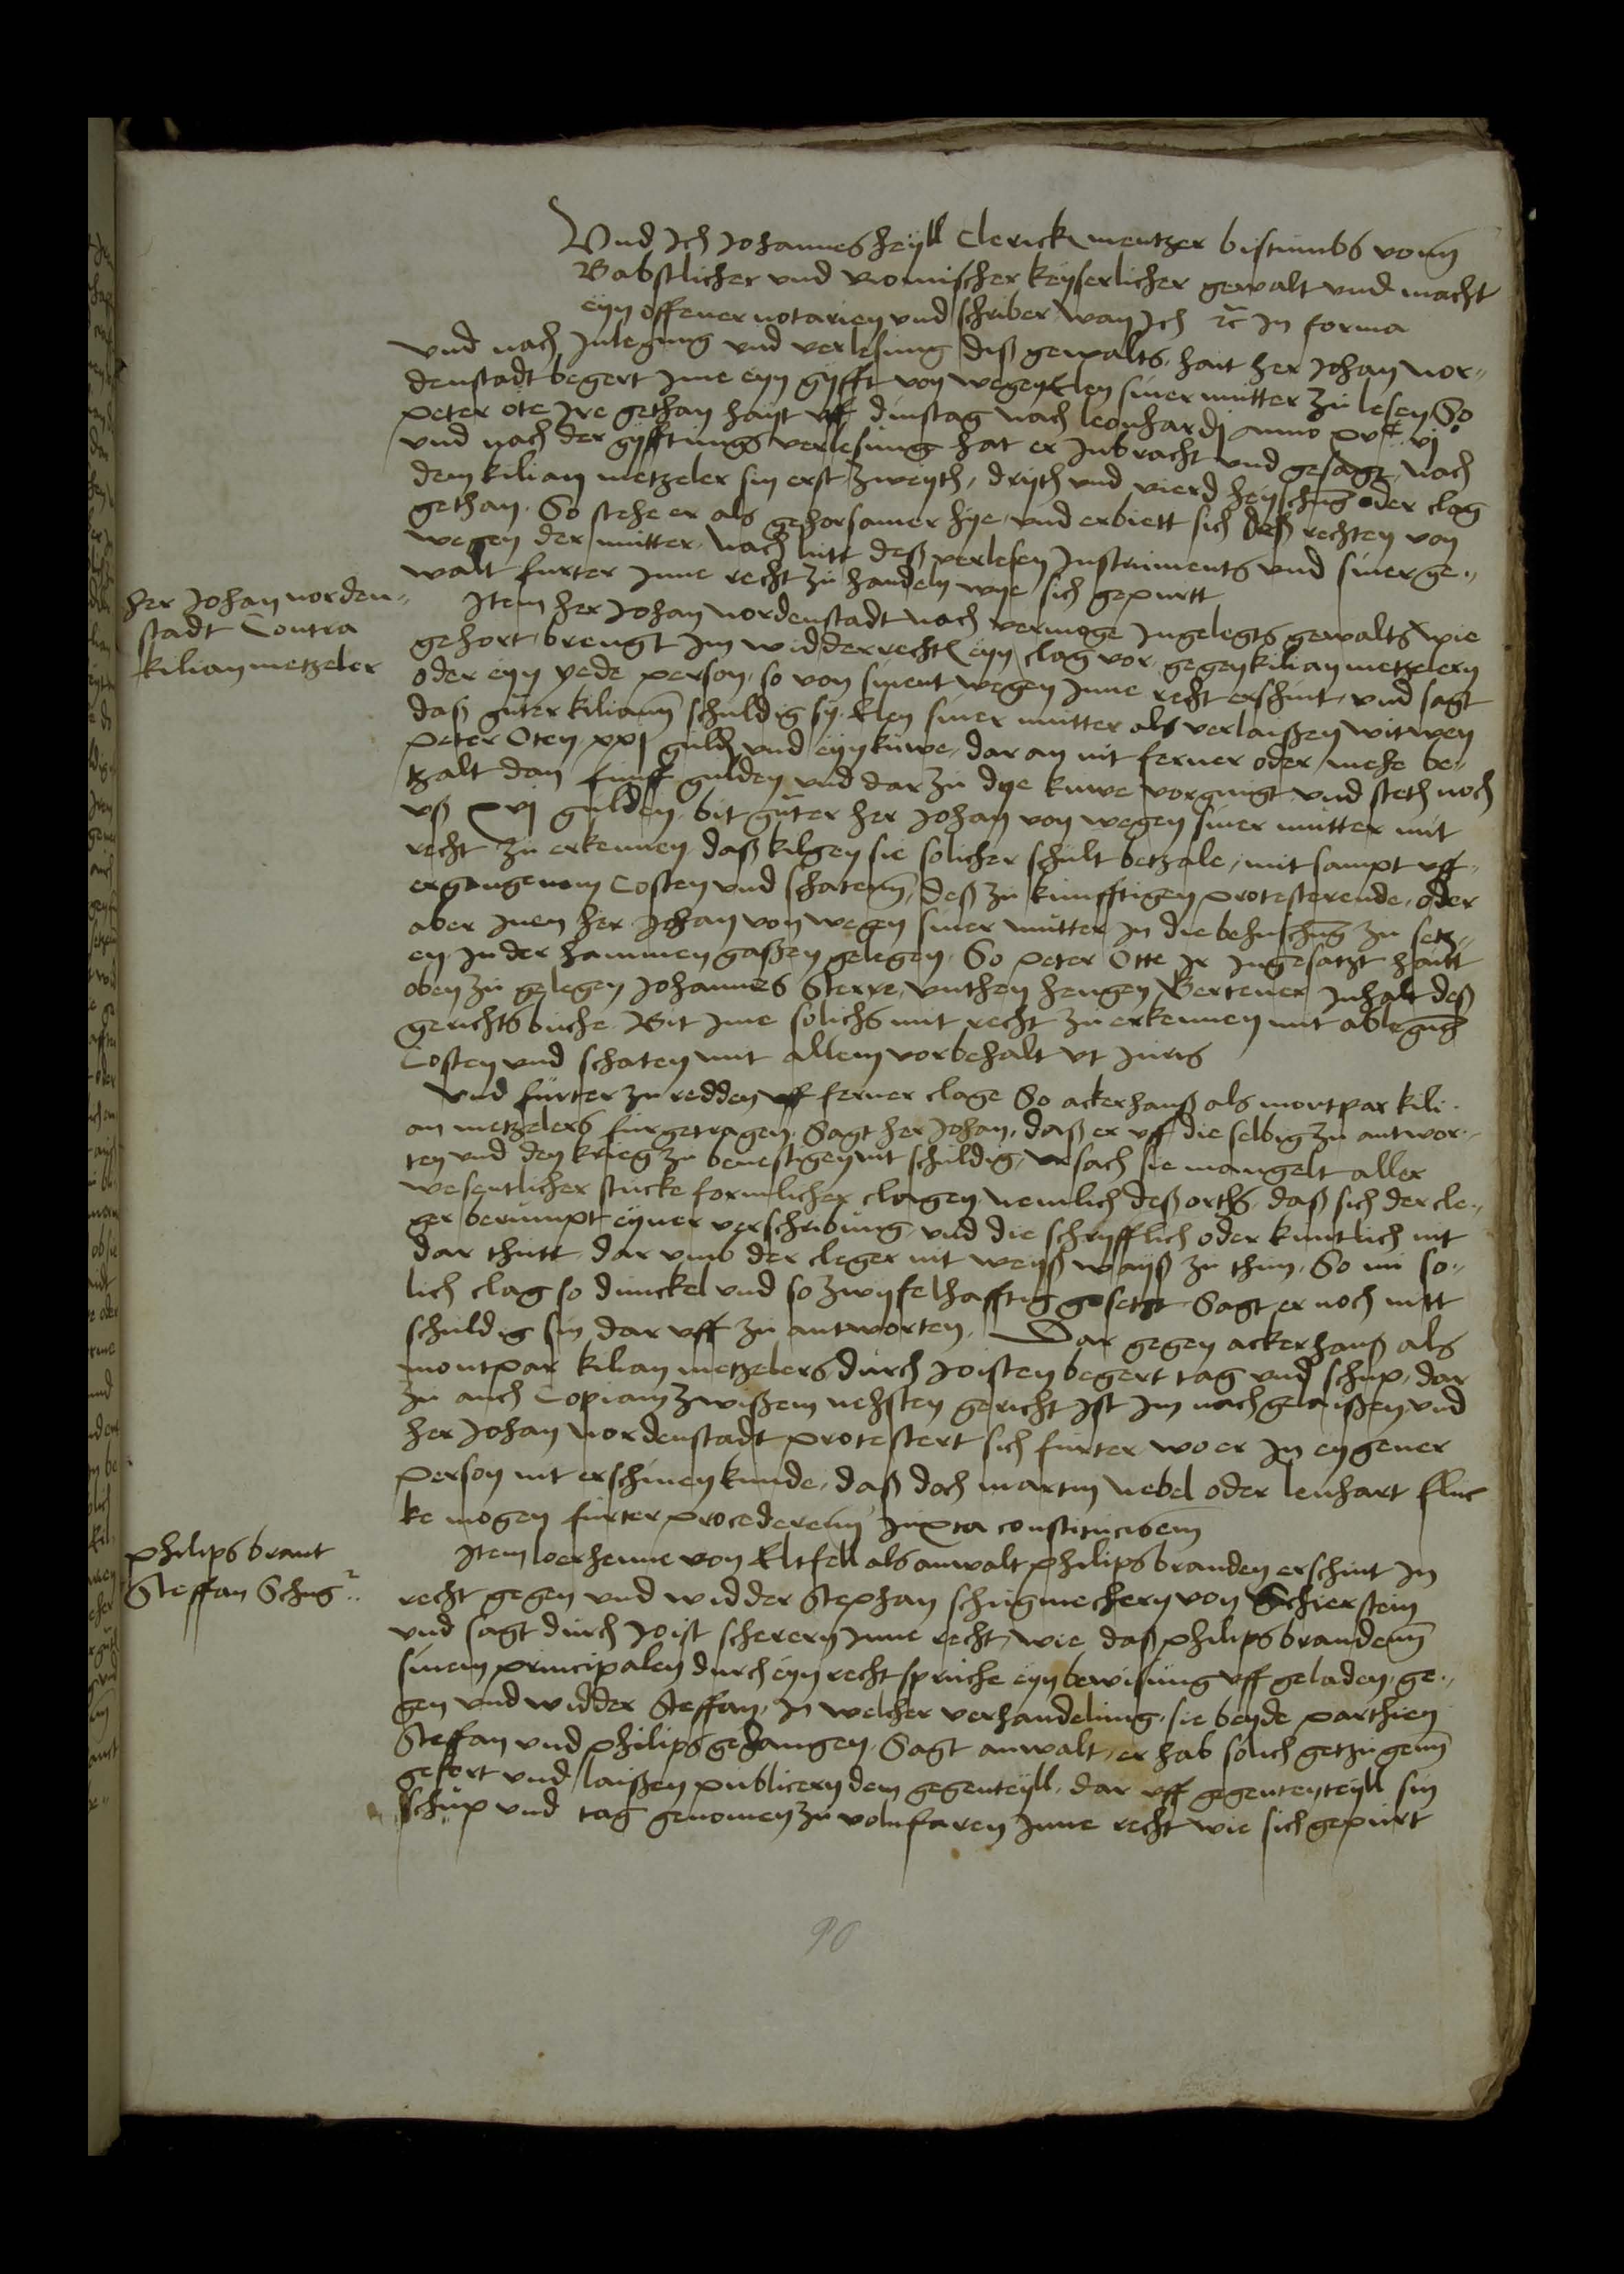 Und Ich Johannes heyll Clerick mentzer bistumbs vonn
Babstlicher und Romischer keyserlicher gewalt und macht
eyn offener notarien und schriber wan Ich rc In forma
Und nach Inlegung und verlesung diß gewalts hait her Johan Nor-
denstadt begert Ime eyn gyfft von wegen Elen siner mutter zu lesen So
peter ote Ire gethan hayt uff dinstag nach leonhardj Anno xvc vj
und nach der gyfftungs verlesung hat er Inbracht und gesagt, Nach
dem kilian metzeler sin erst zweyth, dryth und vierd heyschung oder clag
gethan. So stehe er als gehorsamer hye, und erbiett sich deß rechten von
wegen der mutter, nach lutt deß verlesen Instruments und siner ge-
walt furter Inne recht zu handeln wye sich gepurtt
her Johan norden-
stadt Contra
kilian metzeler
Item her Johan Nordenstadt nach vermoge Ingelegts gewalts wie
gehort, brengt Im widderrecht eyn clag vor gegen kilian metzelern
oder eyn yede person, so von sinent wegen Inne recht erschint, und sagt
daß guter kiliann schuldig sy Elen siner mutter als verlaißen witwen
peter Oten xxj guld und eyn kuwe, dar an nit ferner oder mehe be-
tzalt dan funff gulden und dar zu dye kuwe vorgnugt und steth noch
uß xvj gulden, bit guter her Johan von wegen siner mutter mit
recht zu erkennen, daß kilgen sie solicher schult betzale, mit sampt uff-
ergangenem Costen und schatenn, deß zu kunfftigen protesterende, oder
aber Inen her Johan von wegen siner mutter In die behusung zu setz-
en, In der hammen gaßen gelegen, So peter Otte Ir Ingesatzt haitt
oben zu gelegen Johannes Sterre, unthen hengen Bertener Inhalt deß
gerichts buche Bit Ime solichs mit recht zu erkennen mit ablegung
Costen und schaten mit allem vorbehalt ut Juris
Und furter zu redden uff ferner clage So ackerhanß als montpar kili-
an metzelers furgetragen, Sagt her Johan, daß er uff die selbig zu antwor-
ten und den krieg zu bevestigen nit schuldig, ursach sie mangelt aller
wesentlicher stucke formlicher clagen nemlich deß orths, daß sich der cle-
ger berumpt eyner verschribung, und die schryfftlich oder kuntlich nit
dar thutt, dar umb der cleger nit weyß wayß zu thun, So nu so-
lich clag so dunckel und so zwyfelhafftig gesetzt Sagt er noch nitt
schuldig sin, dar uff zu antworten, Dar gegen ackerhanß als
montpar kilian metzelers durch Joisten begert tag und schup, dar
zu auch Copiam zwißem nehsten gericht Ist Im nachgelaißen und
her Johan Nordenstadt protestert sich furter wo er In eygener
person nit erschinen kunde, daß doch martin Nebel oder lenhart fluc
ke mogen furter procederenn Juxta constitucionem
philips brant
Steffan Schug
Item loerhenne von Eltfell als anwalt philips branden erschint In
recht gegen und widder Stephan schugmechern von Schierstein
und sagt durch Joist scherern Inne recht, wie daß philips brandenn
sinem principalen durch eyn recht spruche eyn bewisung uff geladen, ge-
gen und widder Steffan, In welcher verhandelung, sie beyde parthien
Steffan und philips gehangen, Sagt anwalt, er hab solich getzugenn
gefort und laißen publicern dem gegenteyll, dar uff gegententeyll sin
schup und tag genomen zu volnfaren Inne recht wie sich gepurt
90